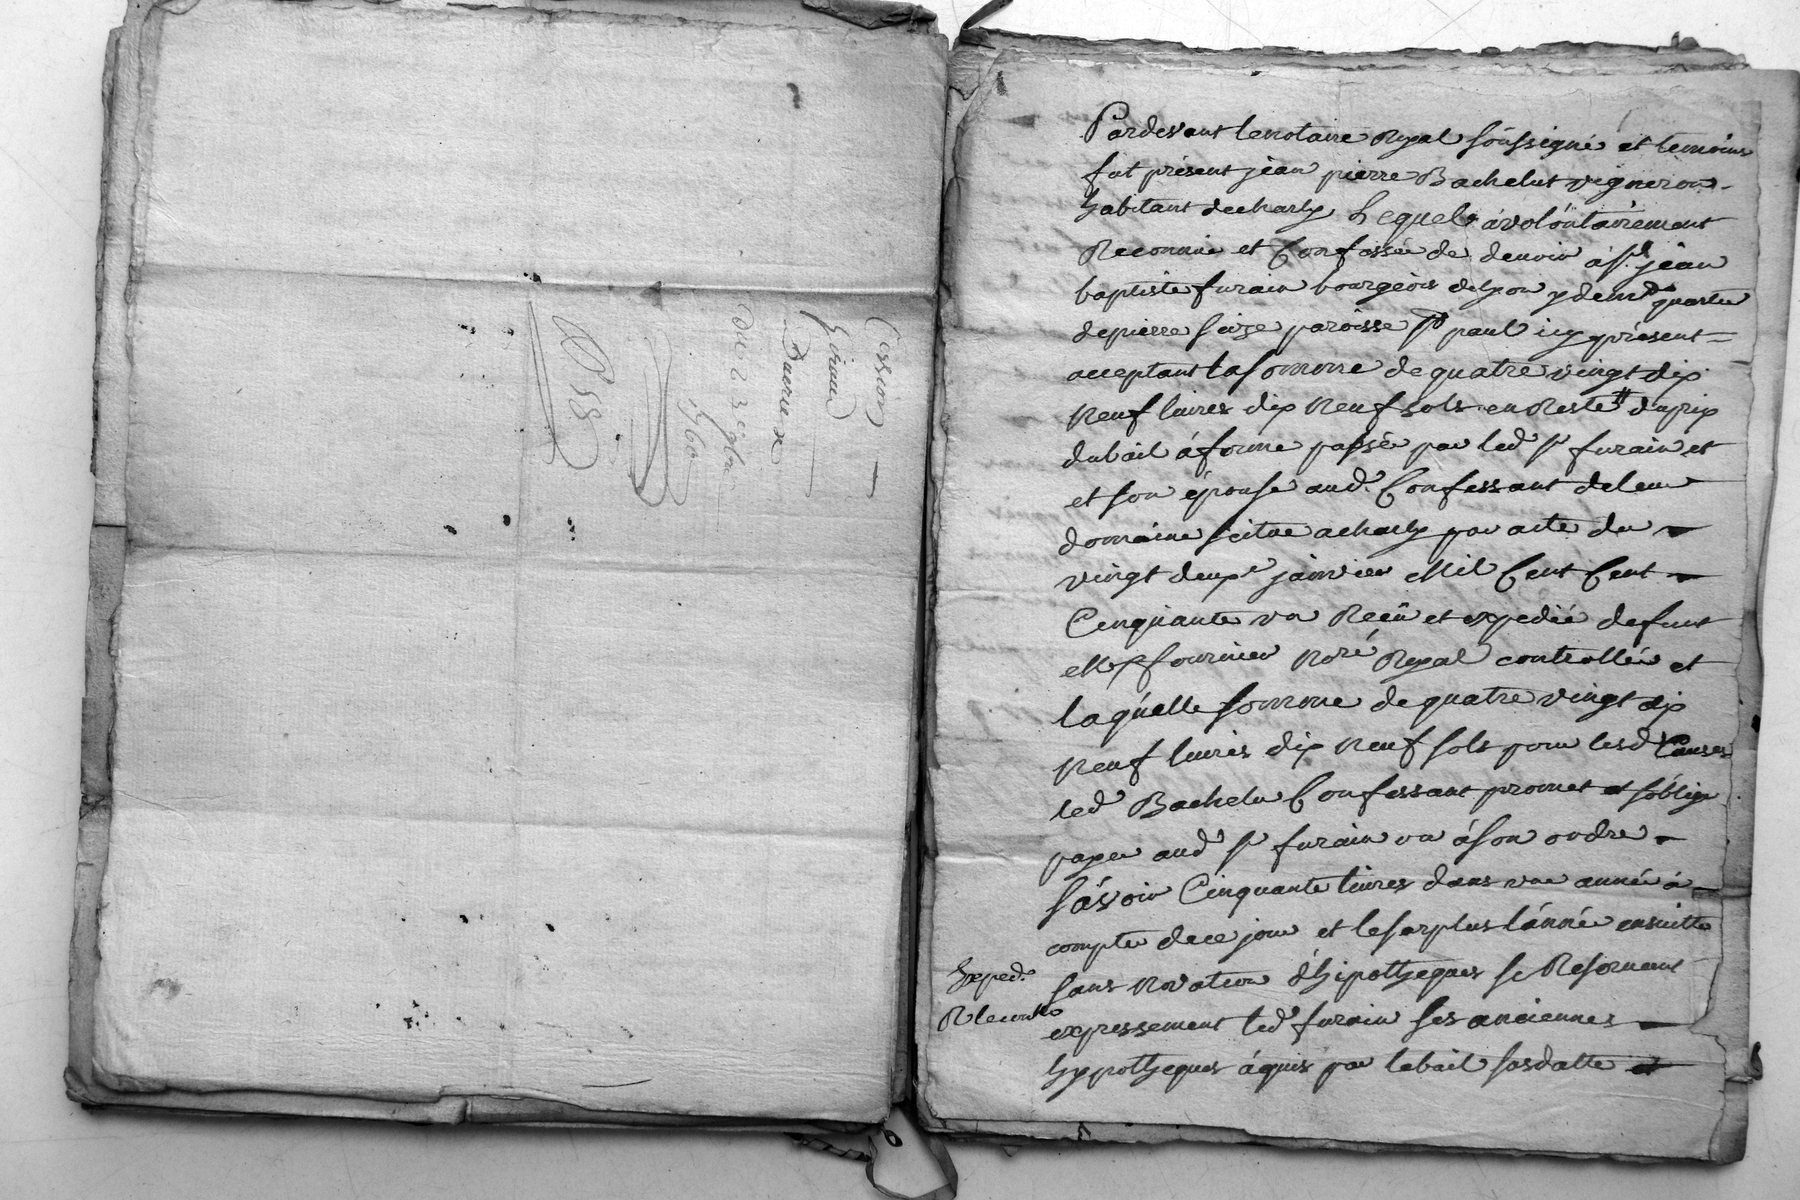 Cession
Giraud
Du 23 7bre
1760
Pardevant le notaire Royal soussigné et temoins
fut présent jean pierre Bachelut vigneron
habitant de charly Lequel a volontairement
Reconnu et Confessé de devoir à sr jean
baptiste furain bourgeois de lyon y demt quartier
de pierre scize paroisse st paul icy présent
acceptant la somme de quatre vingt dix
neuf livres dix neuf sols en Reste du prix
du bail à ferme passé par led sr furain et
et son épouse aud. Confessant de leur
domaine scitué a charly par acte du
vingt deuxe janvier Mil Cent Cent
Cinquante un Reçu et expedié defunt
Me fournier Nore Royal controllé et
laquelle somme de quatre vingt dix
neuf livres dix neuf sols pour lesd Causes
led Bachelu Confessant promet et s'oblige
payer aud sr furain ou à son ordre
sávoir Cinquante livres dans une année à
compter de ce jour et le surplus l'année ensuitte
sans novation d'hipotheques se Reservant
expressement led furain ses anciennes
hypotheques áquis par le bail susdatte et
Exped.